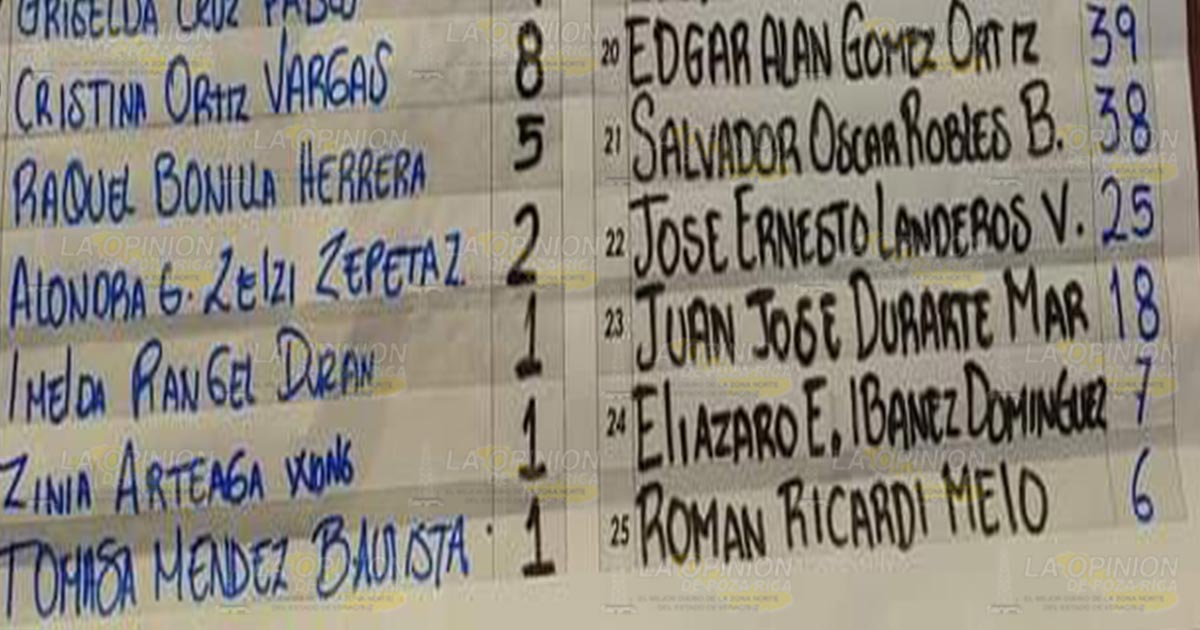 GRISELDA CRUZ PABLO
CRISTINA ORTIZ VARGAS 8
RAQUEL BONILLA HERRERA 5
ALONDRA G. ZEPETA Z. 2
IMELDA RANGEL DURAN 1
ZINIA ARTEAGA WONG 1
TOMASA MENDEZ BAUTISTA 1
20 EDGAR ALAN GOMEZ ORTIZ 39
21 SALVADOR OSCAR ROBLES B. 38
22 JOSE ERNESTO LANDEROS V. 25
23 JUAN JOSE DURARTE MAR 18
24 ELIAZARO E. IBANEZ DOMINGUEZ 7
25 ROMAN RICARDI MELO 6
LA OPINION
DE POZA RICA
EL MEJOR DIARIO DE LA ZONA NORTE
DEL ESTADO DE VERACRUZ